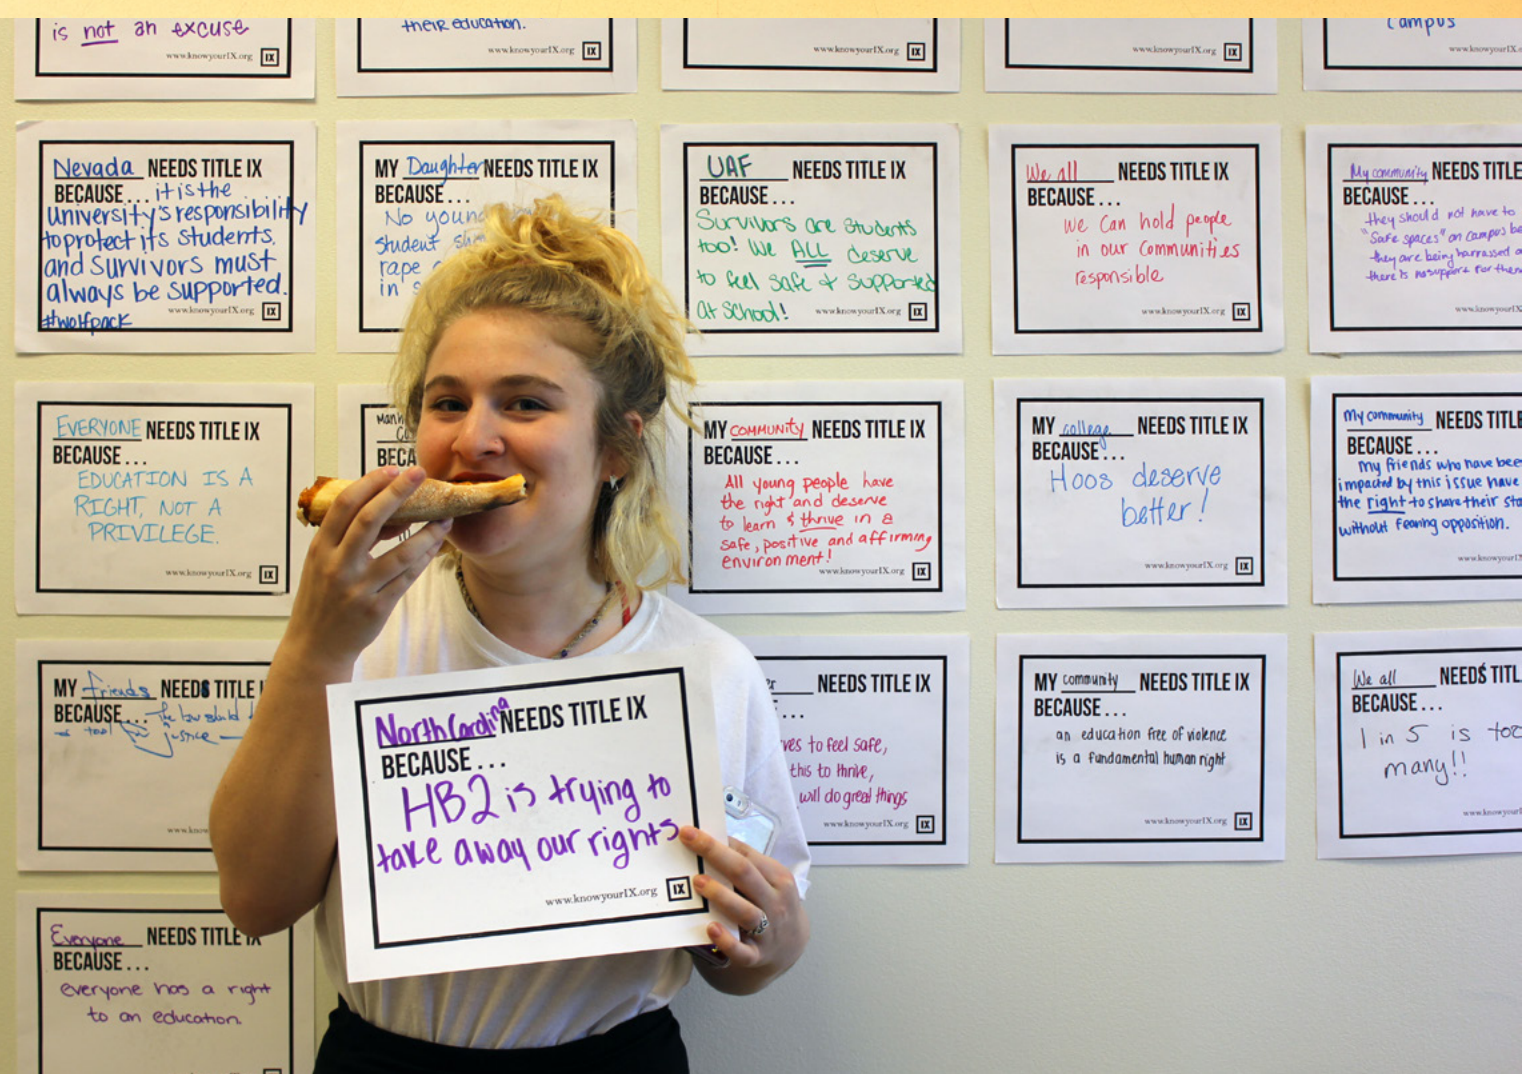 is not an excuse
www.knowyourIX.org IX
their education.
www.knowyourIX.org IX
www.knowyourIX.org IX
www.knowyourIX.org IX
campus
www.knowyourIX.o
Nevada NEEDS TITLE IX
BECAUSE... it is the
university's responsibility
to protect its students,
and survivors must
always be supported.
#wolfpack
www.knowyourIX.org IX
MY Daughter NEEDS TITLE IX
BECAUSE...
No young
student
rape
in
UAF NEEDS TITLE IX
BECAUSE...
Survivors are students
too! We ALL deserve
to feel safe & supported
at school!
www.knowyourIX.org IX
We all NEEDS TITLE IX
BECAUSE...
we can hold people
in our communities
responsible
www.knowyourIX.org IX
My community NEEDS TITLE
BECAUSE...
they should not have to
"safe spaces" on campus
they are being harrassed
there is no support for them
EVERYONE NEEDS TITLE IX
BECAUSE...
EDUCATION IS A
RIGHT, NOT A
PRIVILEGE.
www.knowyourIX.org IX
BECA
MY COMMUNITY NEEDS TITLE IX
BECAUSE...
All young people have
the right and deserve
to learn & thrive in a
safe, positive and affirming
environment!
www.knowyourIX.org IX
MY college NEEDS TITLE IX
BECAUSE...
Hoos deserve
better!
www.knowyourIX.org IX
My community NEEDS TITLE
BECAUSE...
My friends who have been
impacted by this issue have
the right to share their
without fearing opposition.
www.knowyourIX
MY friends NEEDS TITLE
BECAUSE... The law should
tool for justice
www.know
North Carolina NEEDS TITLE IX
BECAUSE...
HB2 is trying to
take away our rights
www.knowyourIX.org IX
NEEDS TITLE IX
...
to feel safe,
this to thrive,
will do great things
www.knowyourIX.org IX
MY community NEEDS TITLE IX
BECAUSE...
an education free of violence
is a fundamental human right
www.knowyourIX.org IX
We all NEEDS TITL
BECAUSE...
1 in 5 is too
many!!
www.knowyourIX
Everyone NEEDS TITLE IX
BECAUSE...
everyone has a right
to an education.